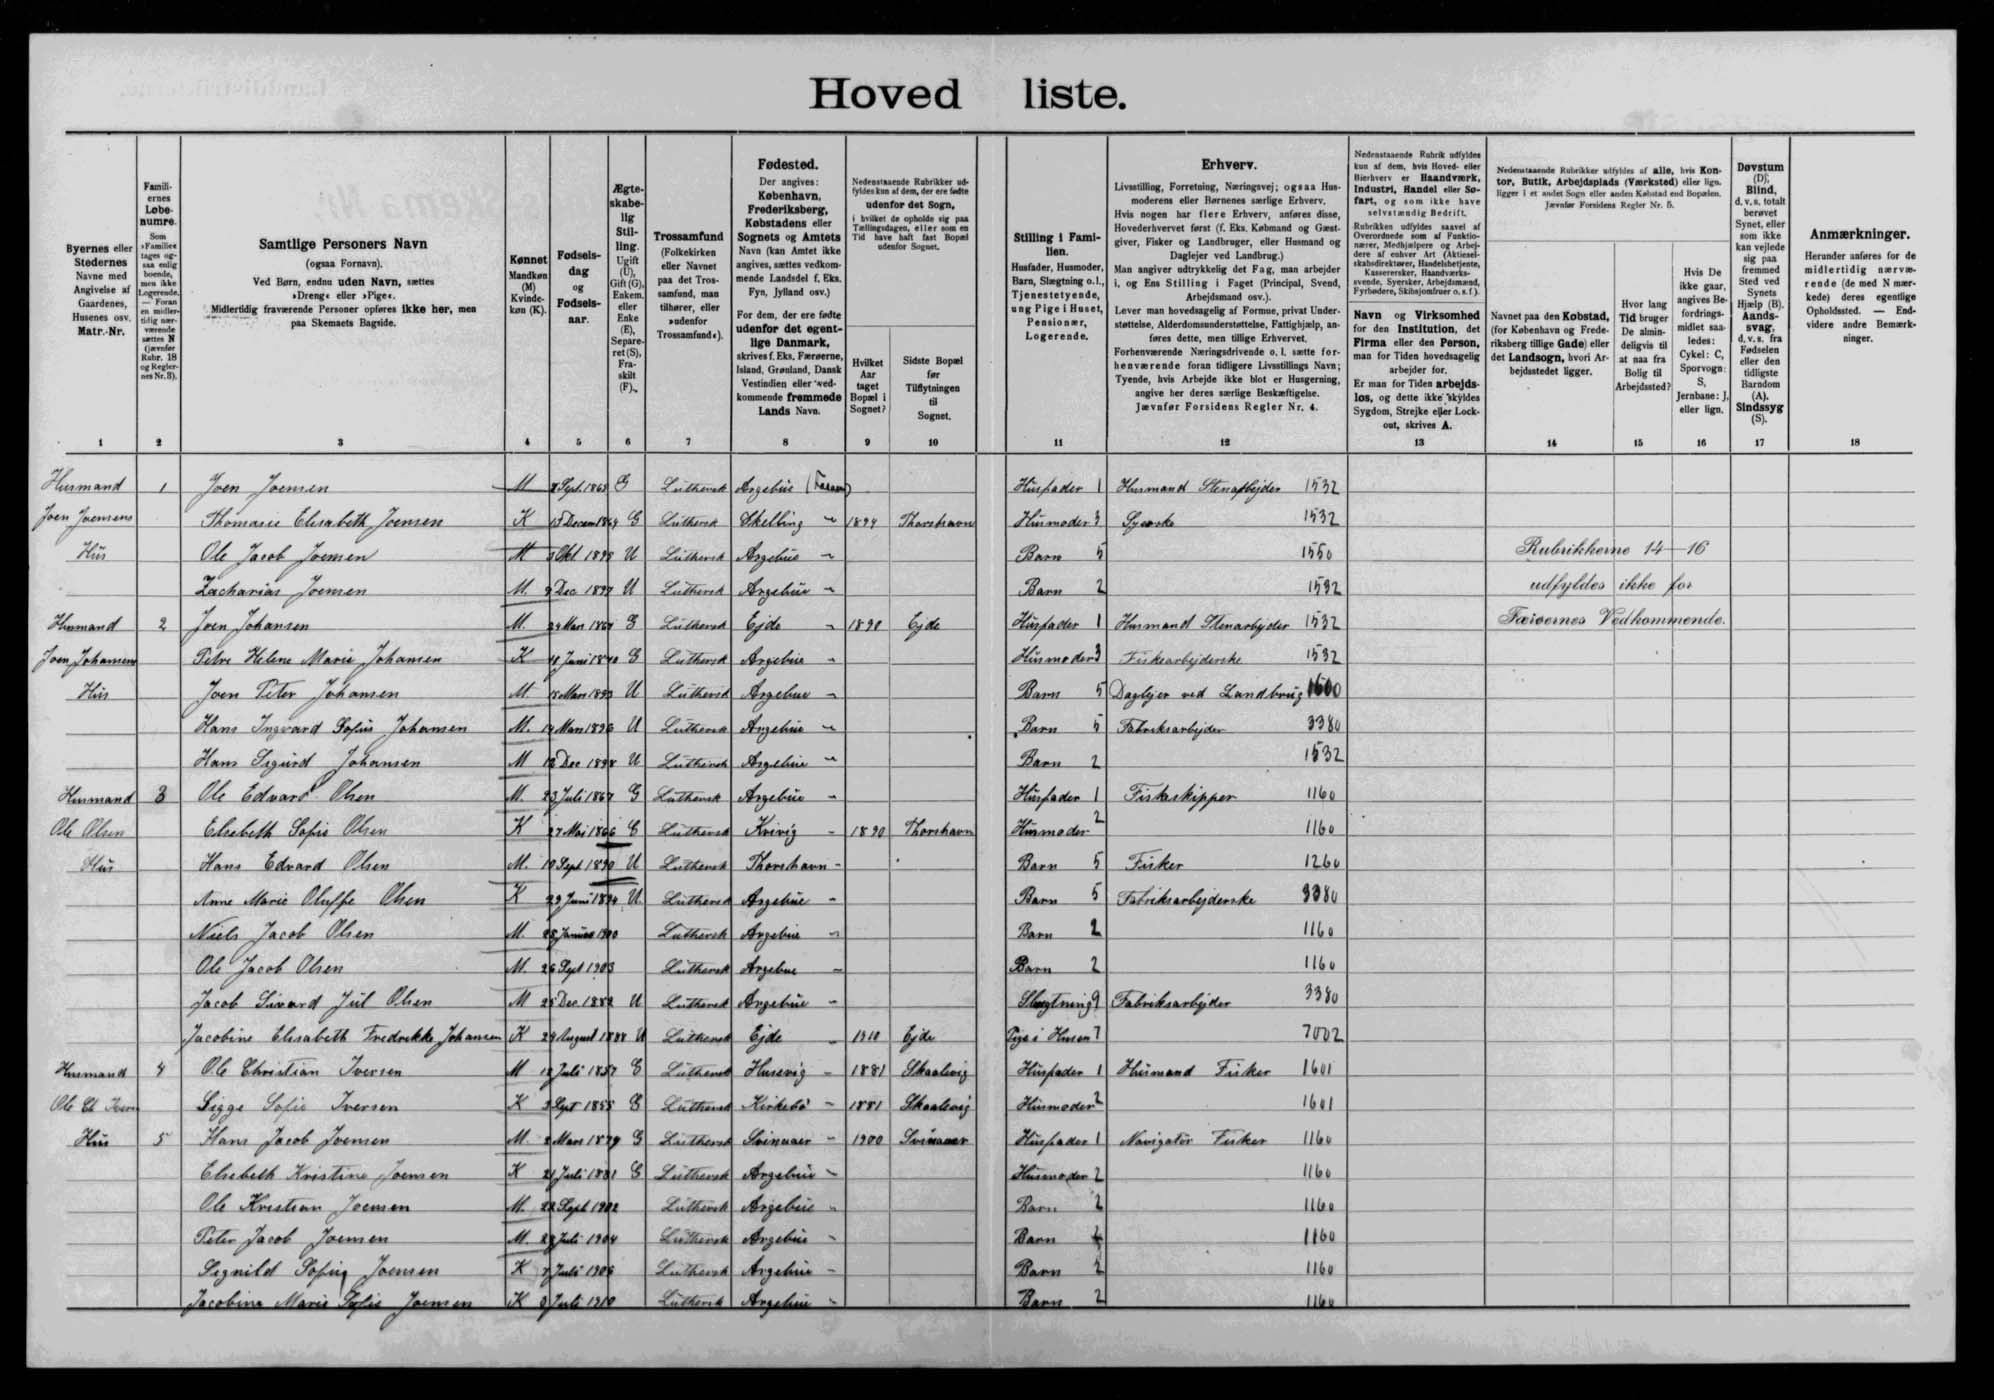 Hovedliste.
Byernes eller Stedernes Navne med Angivelse af Gaardenes, Husenes osv. Matr.-Nr.
Familiernes Løbenumre. Som »Familie« tages ogsaa enlig boende, men ikke Logerende. — Foran en midlertidig nærværende sættes N (jævnfør Rubr. 18 og Reglernes Nr. 3).
Samtlige Personers Navn (ogsaa Fornavn). Ved Børn, endnu uden Navn, sættes »Dreng« eller »Pige«. Midlertidig fraværende Personer opføres ikke her, men paa Skemaets Bagside.
Kønnet Mandkøn (M) Kvindekøn (K).
Fødselsdag og Fødselsaar.
Ægteskabelig Stilling. Ugift (U), Gift (G), Enkem. eller Enke (E), Separeret (S), Fraskilt (F).
Trossamfund (Folkekirken eller Navnet paa det Trossamfund, man tilhører, eller »udenfor Trossamfund«).
Fødested. Der angives: København, Frederiksberg, Købstadens eller Sognets og Amtets Navn (kan Amtet ikke angives, sættes vedkommende Landsdel f. Eks. Fyn, Jylland osv.) For dem, der ere fødte udenfor det egentlige Danmark, skrives f. Eks. Færøerne, Island, Grønland, Dansk Vestindien eller vedkommende fremmede Lands Navn.
Nedenstaaende Rubrikker udfyldes kun af dem, der ere fødte udenfor det Sogn, i hvilket de opholde sig paa Tællingsdagen, eller som en Tid have haft fast Bopæl udenfor Sognet.
Hvilket Aar taget Bopæl i Sognet?
Sidste Bopæl før Tilflytningen til Sognet.
Stilling i Familien. Husfader, Husmoder, Barn, Slægtning o. l., Tjenestetyende, ung Pige i Huset, Pensionær, Logerende.
Erhverv. Livsstilling, Forretning, Næringsvej; ogsaa Husmoderens eller Børnenes særlige Erhverv. Hvis nogen har flere Erhverv, anføres disse, Hovederhvervet først (f. Eks. Købmand og Gæstgiver, Fisker og Landbruger, eller Husmand og Daglejer ved Landbrug.) Man angiver udtrykkelig det Fag, man arbejder i, og Ens Stilling i Faget (Principal, Svend, Arbejdsmand osv.). Lever man hovedsagelig af Formue, privat Understøttelse, Alderdomsunderstøttelse, Fattighjælp, anføres dette, men tillige Erhvervet. Forhenværende Næringsdrivende o. l. sætte forhenværende foran tidligere Livsstillings Navn; Tyende, hvis Arbejde ikke blot er Husgerning, angive her deres særlige Beskæftigelse. Jævnfør Forsidens Regler Nr. 4.
Nedenstaaende Rubrik udfyldes kun af dem, hvis Hoved- eller Bierhverv er Haandværk, Industri, Handel eller Søfart, og som ikke have selvstændig Bedrift. Rubrikken udfyldes saavel af Overordnede som af Funktionærer, Medhjælpere og Arbejdere af enhver Art (Aktieselskabsdirektører, Handelsbetjente, Kasserersker, Haandværkssvende, Syersker, Arbejdsmænd, Fyrbødere, Skibsjomfruer o. s. f.).
Navn og Virksomhed for den Institution, det Firma eller den Person, man for Tiden hovedsagelig arbejder for. Er man for Tiden arbejdsløs, og dette ikke skyldes Sygdom, Strejke eller Lockout, skrives A.
Nedenstaaende Rubrikker udfyldes af alle, hvis Kontor, Butik, Arbejdsplads (Værksted) eller lign. ligger i et andet Sogn eller anden Købstad end Bopælen. Jævnfør Forsidens Regler Nr. 5.
Navnet paa den Købstad, (for København og Frederiksberg tillige Gade) eller det Landsogn, hvori Arbejdsstedet ligger.
Hvor lang Tid bruger De almindeligvis til at naa fra Bolig til Arbejdssted?
Hvis De ikke gaar, angives Befordringsmidlet saaledes: Cykel: C, Sporvogn: S, Jernbane: J, eller lign.
Døvstum (D), Blind, d. v. s. totalt berøvet Synet, eller som ikke kan vejlede sig paa fremmed Sted ved Synets Hjælp (B). Aandssvag, d. v. s. fra Fødselen eller den tidligste Barndom (A). Sindssyg (S).
Anmærkninger. Herunder anføres for de midlertidig nærværende (de med N mærkede) deres egentlige Opholdssted. — Endvidere andre Bemærkninger.
1 2 3 4 5 6 7 8 9 10 11 12 13 14 15 16 17 18
Husmand 1 Joen Joensen M Sept G Luthersk Argebue Husfader 1 Husmand Stenarbejder 1532
Joen Joensens Thomasie Elisabeth Joensen K G Luthersk Skelling " 1894 Thorshavn Husmoder 3 Syerske 1532
Hus Ole Jacob Joensen M 3 Okt 1895 U Luthersk Argebue " Barn 5 1550 Rubrikkerne 14-16
Zacharias Joensen M. Dec 1897 U Luthersk Argebue " Barn 2 1532 udfyldes ikke for
Husmand 2 Joen Johansen M. Mars G Luthersk Ejde " 1890 Ejde Husfader 1 Husmand Stenarbejder 1532 Færøernes Vedkommende.
Joen Johansens Petre Helene Marie Johansen K Juni G Luthersk Argebue " Husmoder 3 Fiskearbejderske 1532
Hus Joen Peter Johansen M 18 Mars 1893 U Luthersk Argebue " Barn 5 Daglejer ved Landbrug
Hans Ingvard Sofus Johansen M. 14 Mars 1896 U Luthersk Argebue " Barn 5 Fabriksarbejder 3380
Hans Sigurd Johansen M 12 Dec 1898 U Luthersk Argebue " Barn 2 1532
Husmand 3 Ole Edvard Olsen M. 23 Juli 1867 G Luthersk Argebue " Husfader 1 Fiskeskipper 1160
Ole Olsen Elsebeth Sofie Olsen K 27 Mai 1866 G Luthersk Kvivig " 1890 Thorshavn Husmoder 2 1160
Hus Hans Edvard Olsen M. 10 Sept 1890 U Luthersk Thorshavn " Barn 5 Fisker 1260
Anne Marie Oluffe Olsen K 29 Juni 1894 U. Luthersk Argebue " Barn 5 Fabriksarbejderske 3380
Niels Jacob Olsen M. 25 Januar 1900 Luthersk Argebue " Barn 2 1160
Ole Jacob Olsen M. 26 Sept 1903 Luthersk Argebue " Barn 2 1160
Jacob Sivard Jul Olsen M 25 Dec 1882 U Luthersk Argebue " Slægtning 9 Fabriksarbejder 3380
Jacobine Elisabeth Fredrekke Johansen K 24 August 1888 U Luthersk Ejde " 1910 Ejde Pige i Husen 7 7002
Husmand 4 Ole Christian Iversen M 12 Juli 1857 G Luthersk Husevig " 1881 Skaalevig Husfader 1 Husmand Fisker 1601
Ole Sigge Sofie Iversen K Sept 1855 G Luthersk Kirkebø " 1881 Skaalevig Husmoder 2 1601
Hus 5 Hans Jacob Joensen M. 2 Mars 1879 G Luthersk Svinaaer " 1900 Svinaaer Husfader 1 Navigatør Fisker 1160
Elsebeth Kristine Joensen K 21 Juli 1881 G Luthersk Argebue " Husmoder 2 1160
Ole Kristian Joensen M. 22 Sept 1902 Luthersk Argebue " Barn 2 1160
Peter Jacob Joensen M. 29 Juli 1904 Luthersk Argebue " Barn 1160
Signild Sofie Joensen K 7 Juli 1906 Luthersk Argebue " Barn 2 1160
Jacobine Marie Sofie Joensen K Juli 1910 Luthersk Argebue " Barn 2 1160